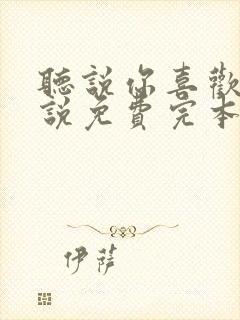 聽說你喜歡
說免費完本
伊薩